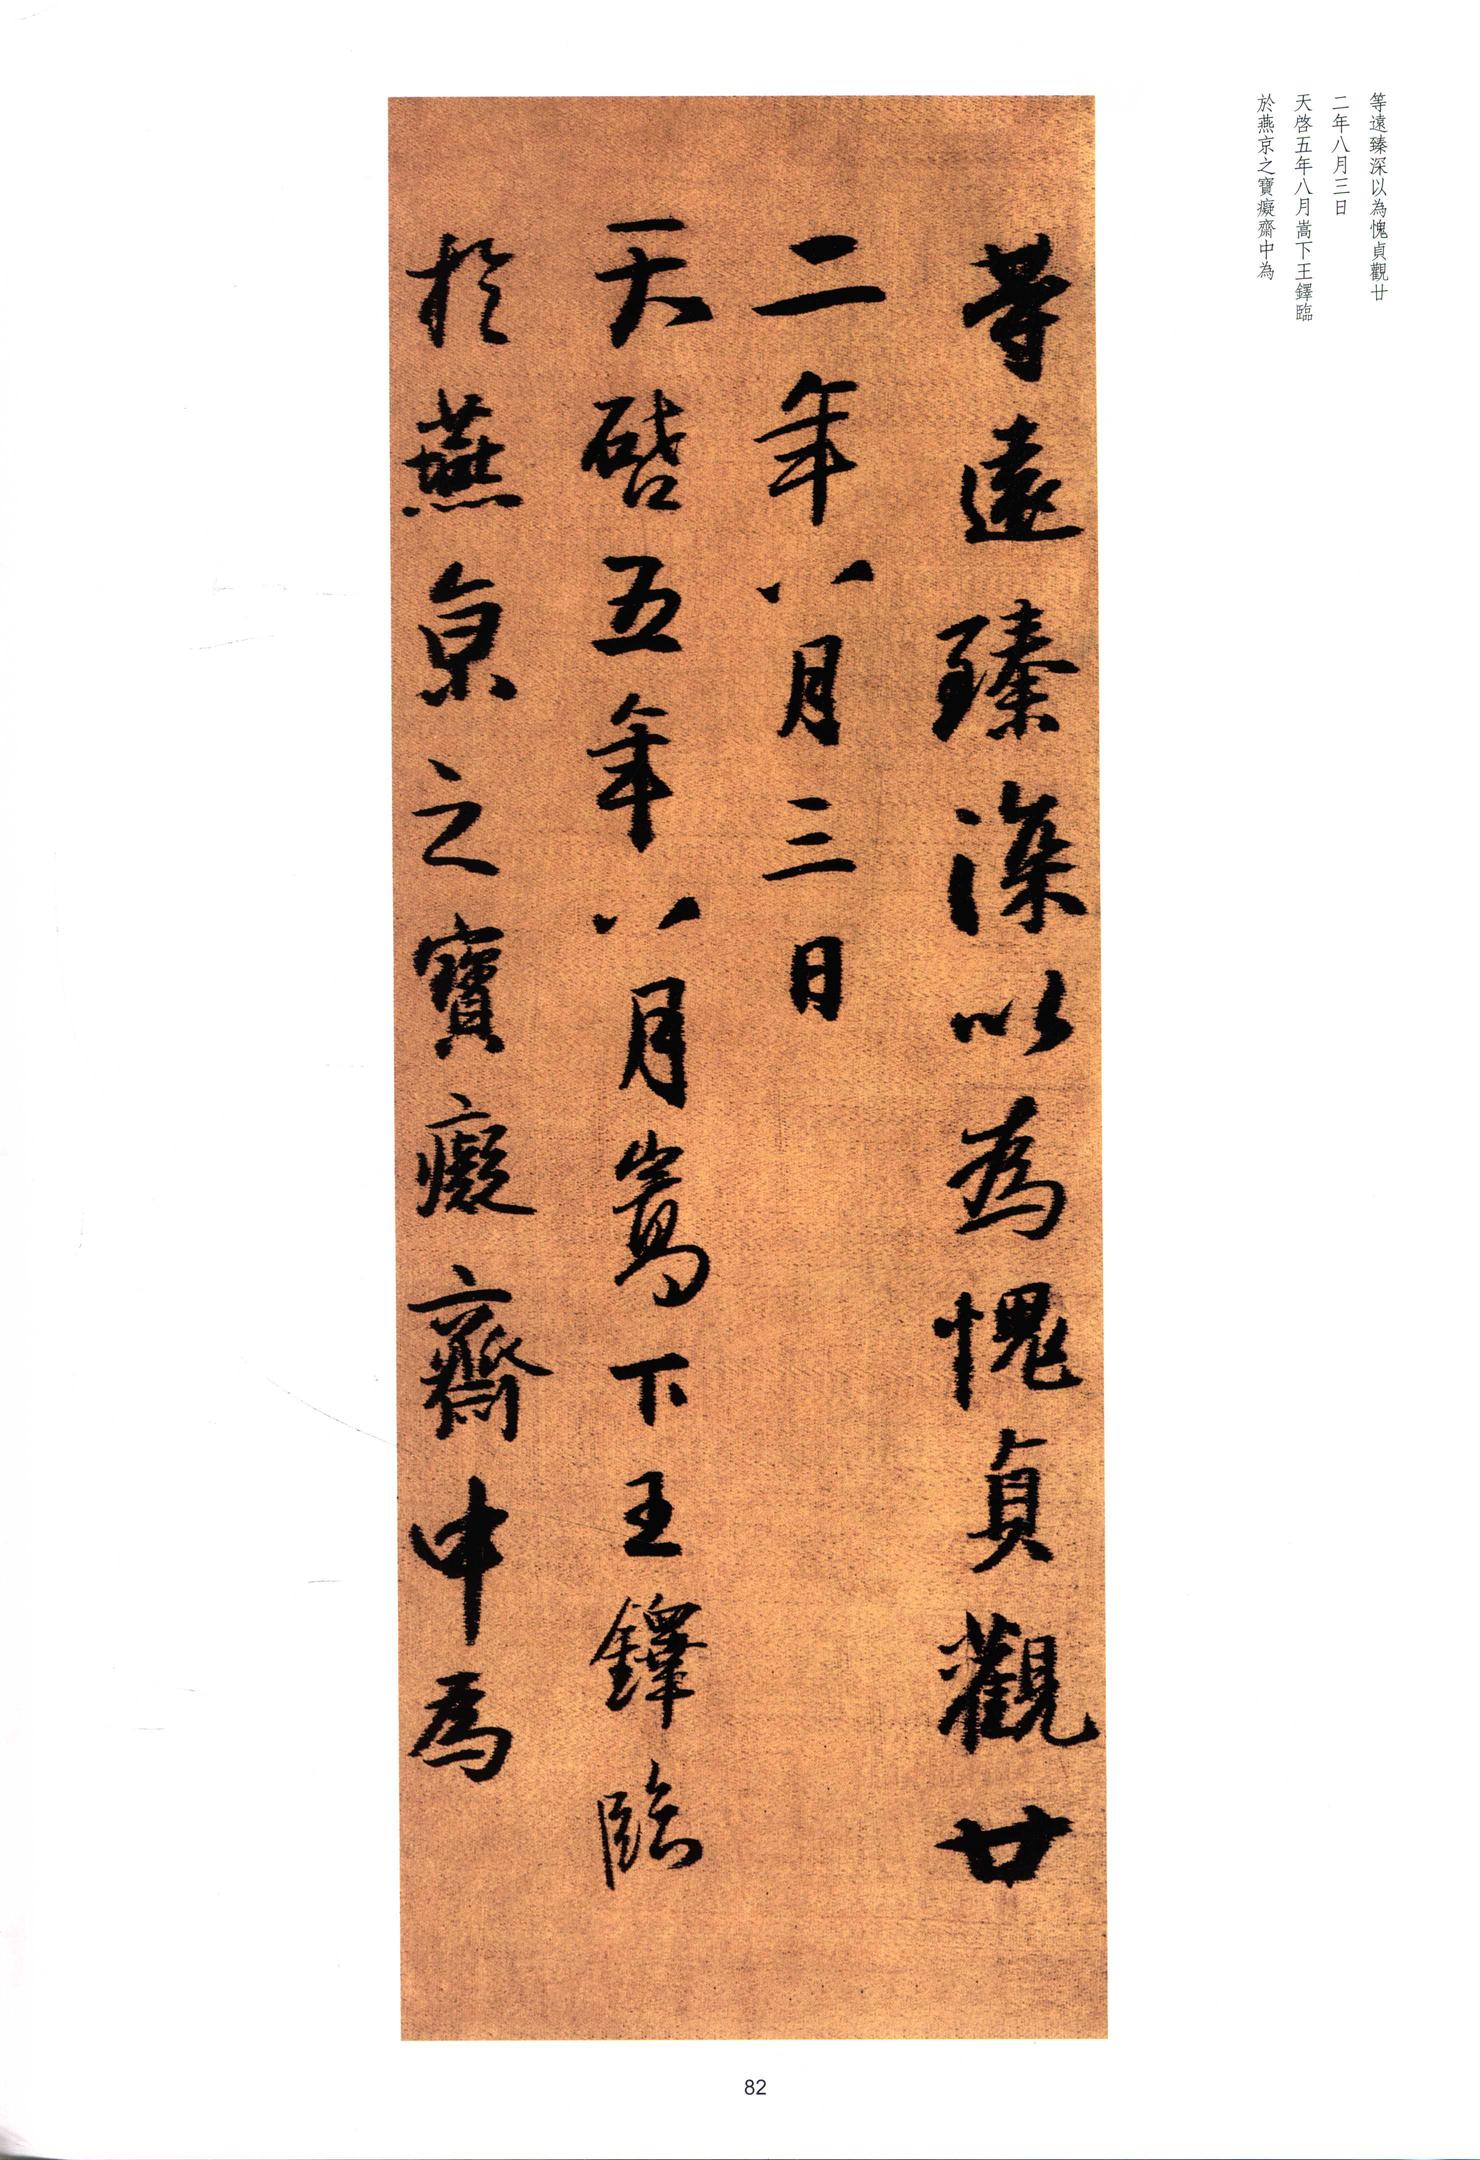 等遠臻深以為愧貞觀廿
二年八月三日
天啓五年八月嵩下王鐸臨
於燕京之寶癡齋中為
等遠臻深以為愧貞觀廿
二年八月三日
天啓五年八月嵩下王鐸臨
於燕京之寶癡齋中為
82